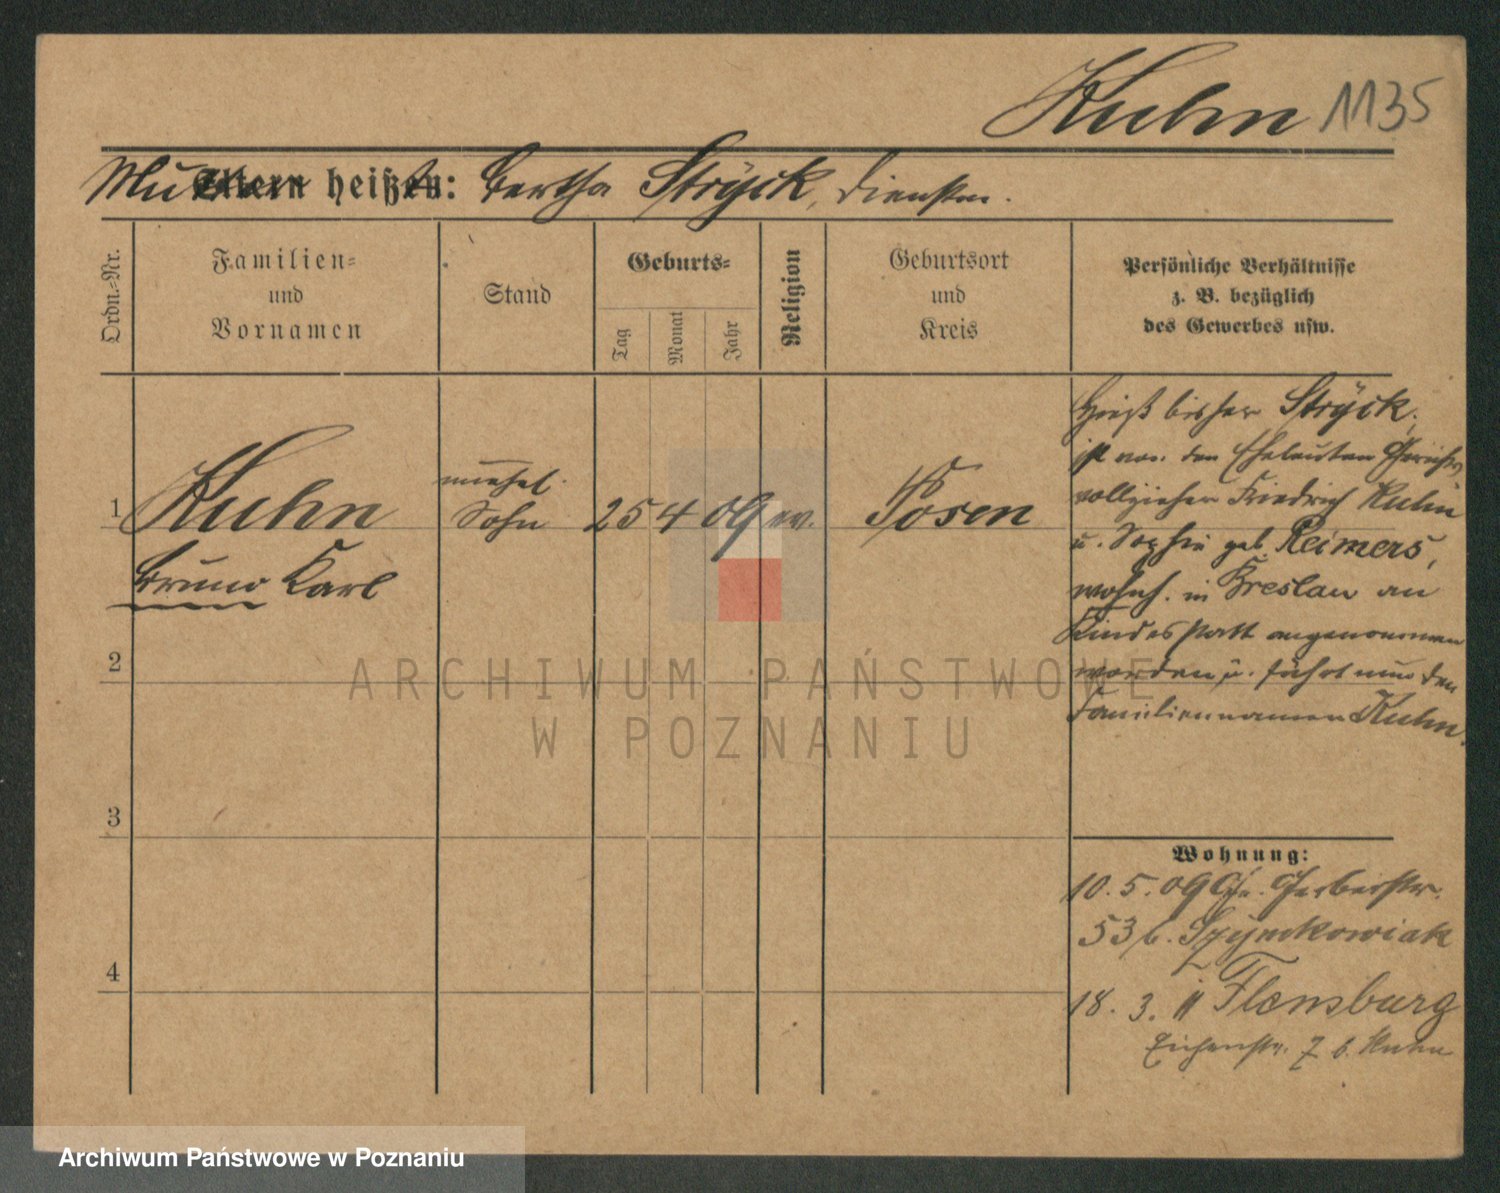 Kuhn 1135
Mutter heißt: Bertha Strÿck, Dienstm.
Ordn.-Nr.
Familien-
und
Vornamen
Stand
Geburts-
Tag
Monat
Jahr
Religion
Geburtsort
und
Kreis
Persönliche Verhältnisse
z. B. bezüglich
des Gewerbes usw.
1
Kuhn
Bruno Karl
unehel.
Sohn
25 4 09 ev. Posen
Hieß bisher Strÿck,
ist von den Eheleuten Gerichts
vollzieher Friedrich Kuhn
u. Sophie geb. Reimers,
wohnh. in Breslau an
Kindesstatt angenommen
worden u. führt nun den
Familiennamen Kuhn.
2
3
4
Wohnung:
10. 5. 09 Gr. Gerberstr.
53 b. Szymkowiak
18. 3. 11 Flensburg
Eichenstr. 7 b. Kuhn
ARCHIWUM PAŃSTWOWE
W POZNANIU
Archiwum Państwowe w Poznaniu